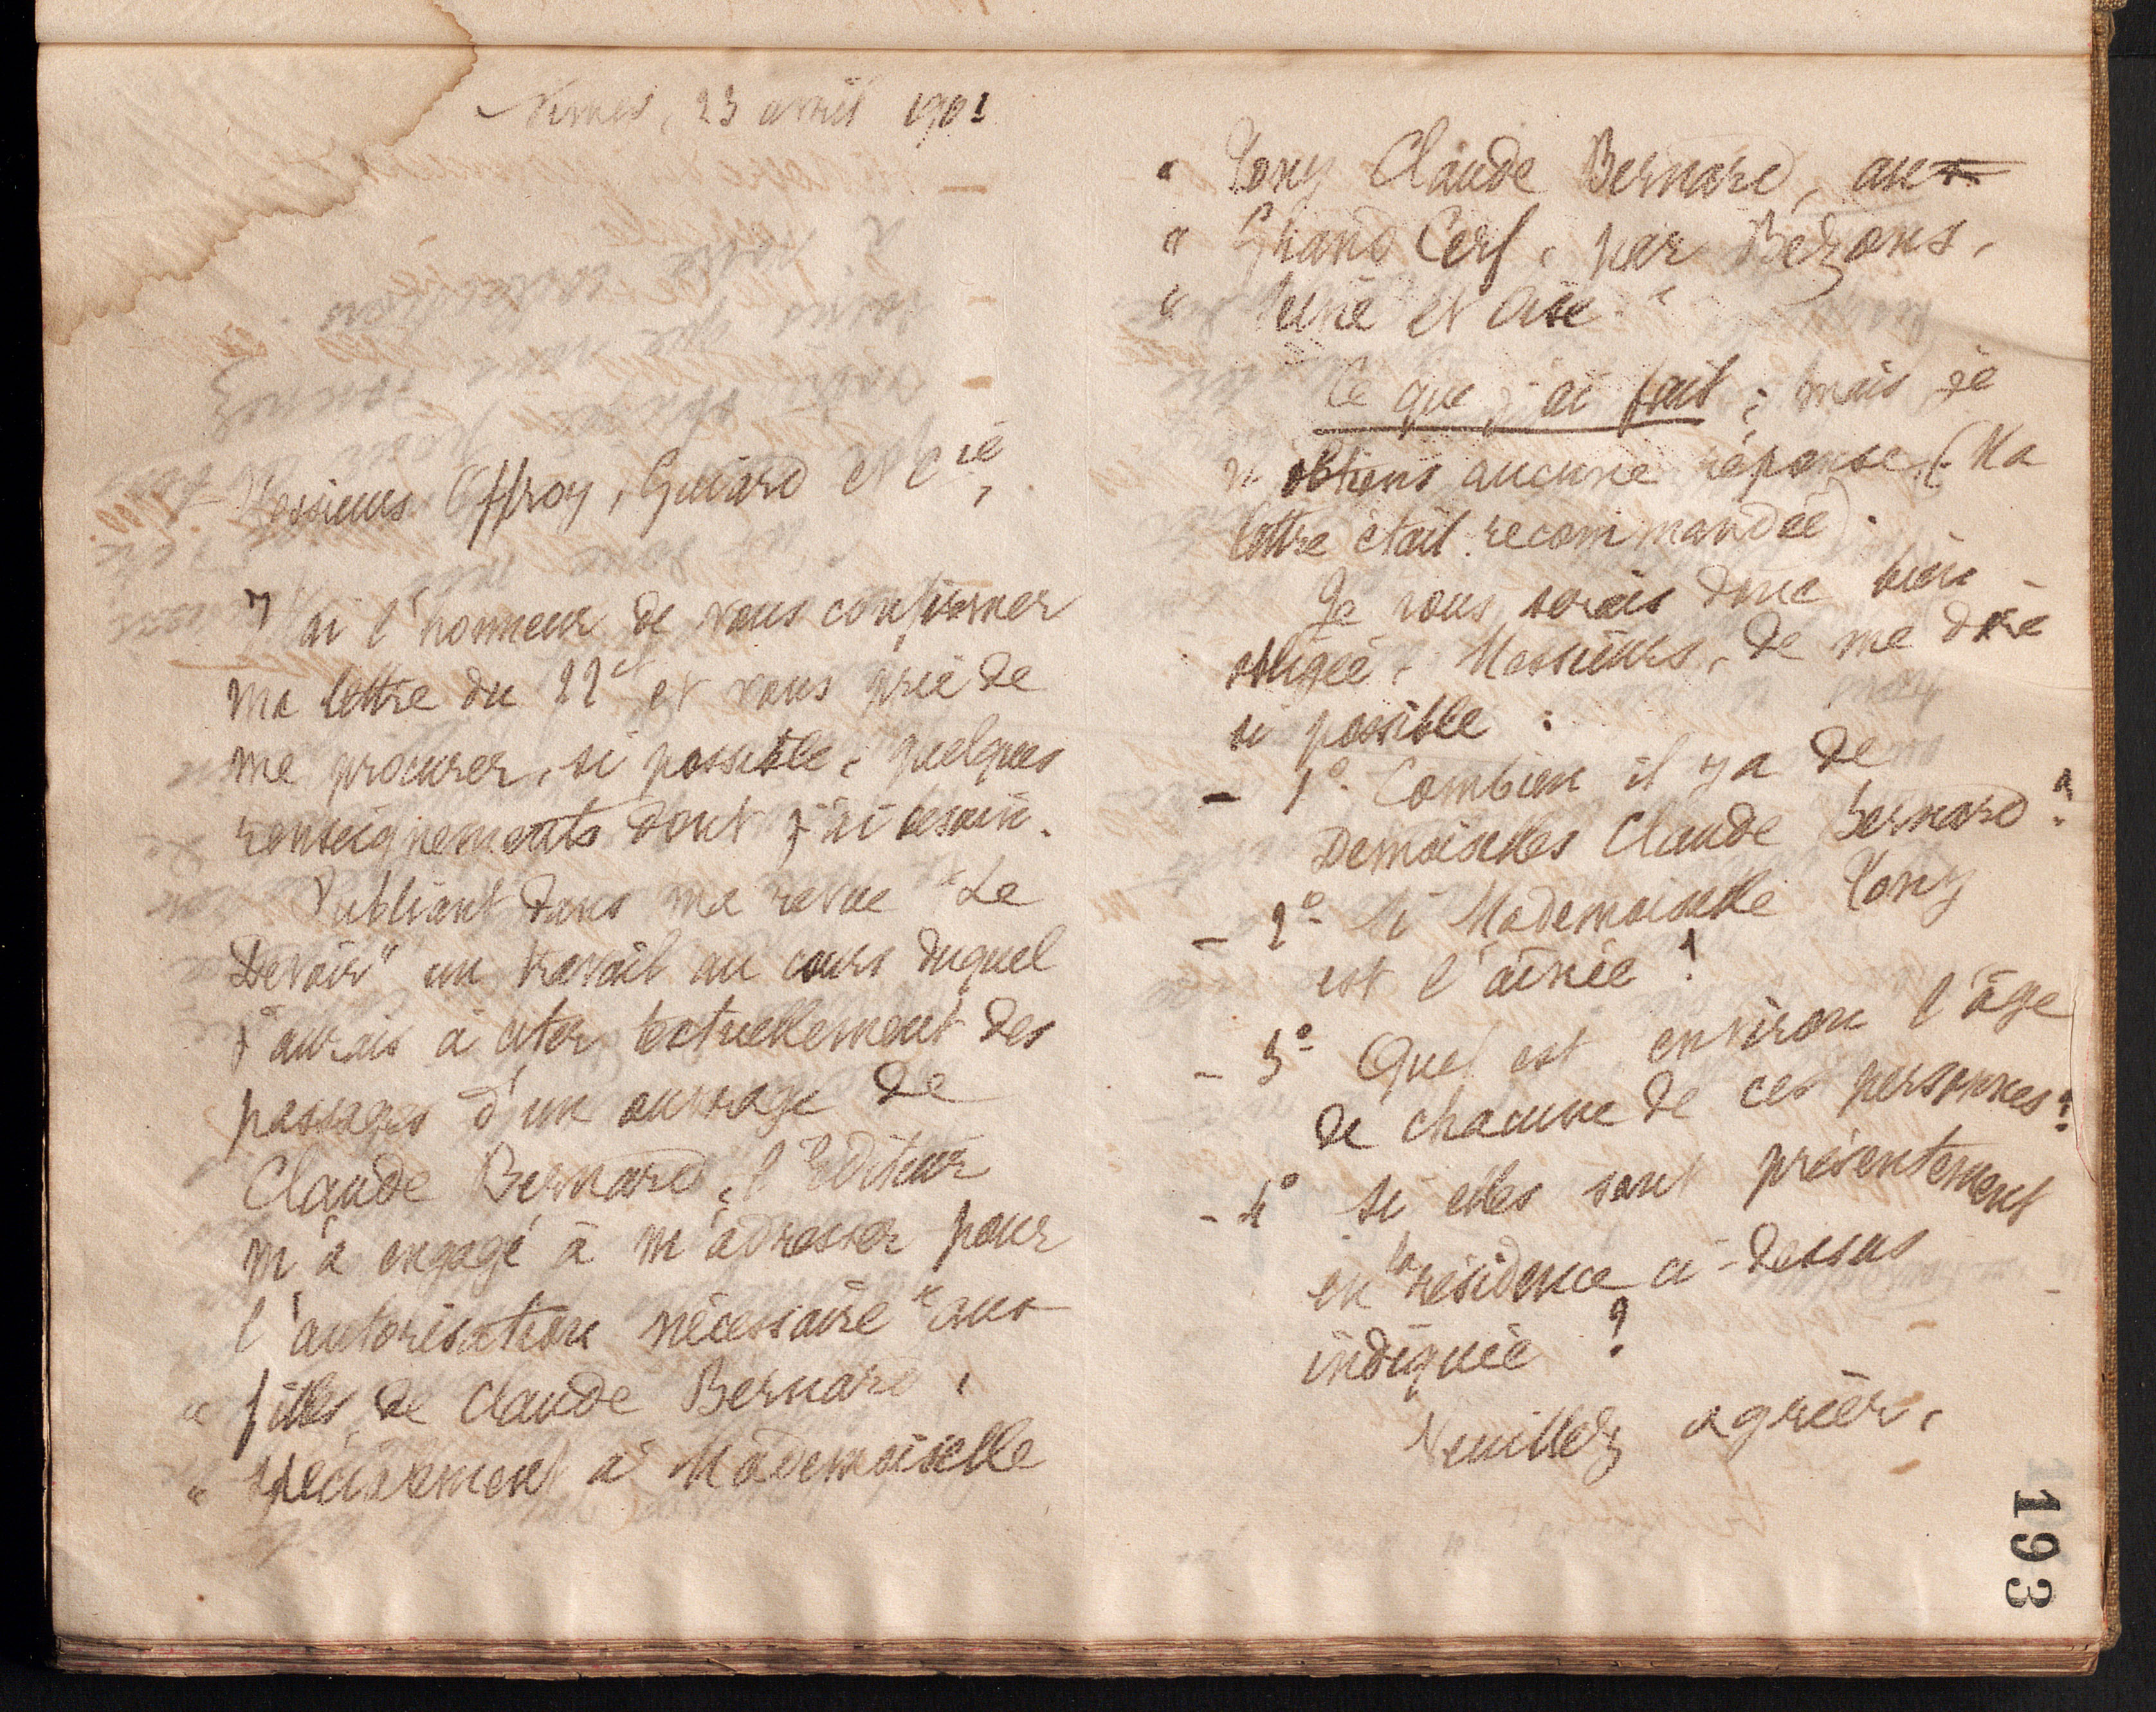 Nimes, 23 avril 1901
Messieurs Offroy, Guiard et Cie,
J'ai l'honneur de vous confirmer
ma lettre du 22 et et vous prie de
me procurer, si possible, quelques
renseignements dont j'ai besoin.
Publiant dans ma revue "Le
Devoir" un travail au cours duquel
j'aurais à citer textuellement des
passages d'un ouvrage de
Claude Bernard, l'Editeur
m'a engagé à m'adresser pour
l'autorisation nécessaire "aux
" filles de Claude Bernard,
" spécialement à Mademoiselle
" Tony Claude Bernard, au
" Grand Cerf, par Bézons,
" Seine et Oise"
Ce que j'ai fait ; mais je
n'obtiens aucune réponse. (Ma
lettre était recommandée).
Je vous serais donc bien
obligée, Messieurs, de me dire
si possible :
- 1º Combien il y a de
Demoiselles Claude Bernard ?
- 2º Si Mademoiselle Tony
est l'aînée ?
- 3º Quel est environ l'âge
de chacune de ces personnes ?
- 4º Si elles sont présentement
en la résidence ci-dessus
indiquée ?
Veuillez agréer,
193